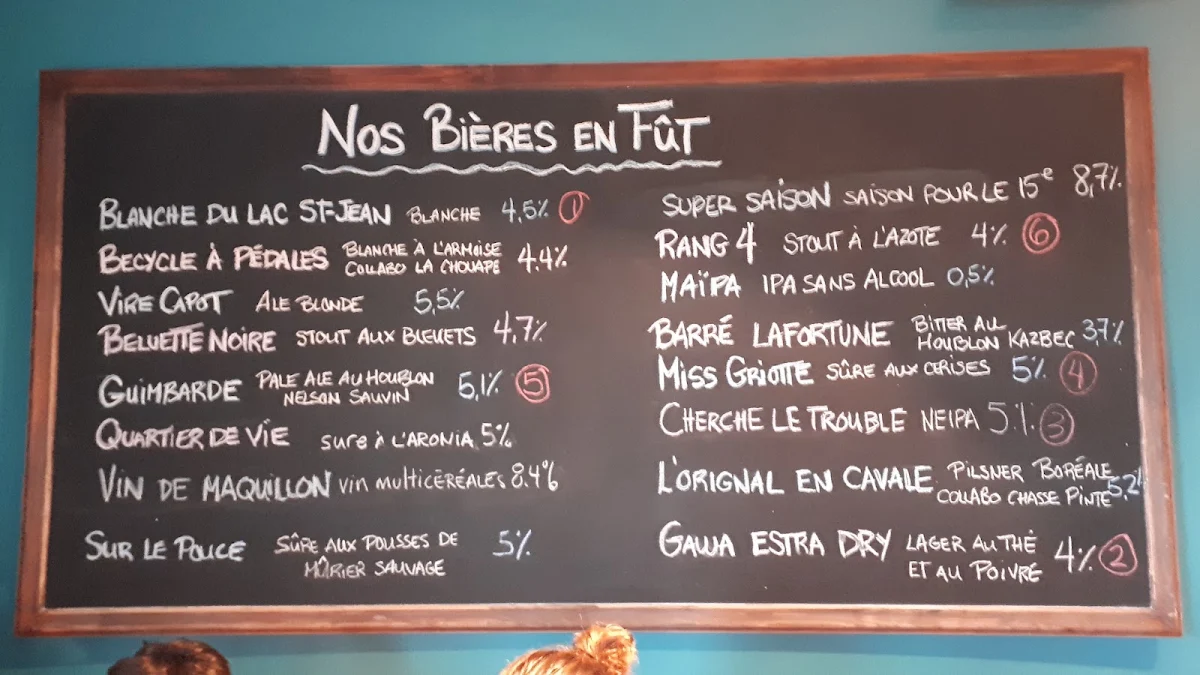 NOS BIÈRES EN FÛT
BLANCHE DU LAC ST-JEAN BLANCHE 4,5% 1
BECYCLE À PÉDALES BLANCHE À L'ARMOISE
COLLABO LA CHOUAPE 4.4%
VIRE CAPOT ALE BLONDE 5,5%
BELUETTE NOIRE STOUT AUX BLEUETS 4,7%
GUIMBARDE PALE ALE AU HOUBLON
NELSON SAUVIN 5,1% 5
QUARTIER DE VIE sure à L'ARONIA 5%
VIN DE MAQUILLON vin multicéréales 8.4%
SUR LE POUCE SÛRE AUX POUSSES DE
MÛRIER SAUVAGE 5%
SUPER SAISON SAISON POUR LE 15e 8,7%
RANG 4 STOUT À L'AZOTE 4% 6
MAÏPA IPA SANS ALCOOL 0,5%
BARRÉ LAFORTUNE BITTER AU
HOUBLON KAZBEC 3,7%
MISS GRIOTTE SÛRE AUX CERISES 5% 4
CHERCHE LE TROUBLE NEIPA 5% 3
L'ORIGNAL EN CAVALE PILSNER BORÉALE
COLLABO CHASSE PINTE 5,2%
GAWA ESTRA DRY LAGER AU THÉ
ET AU POIVRE 4% 2